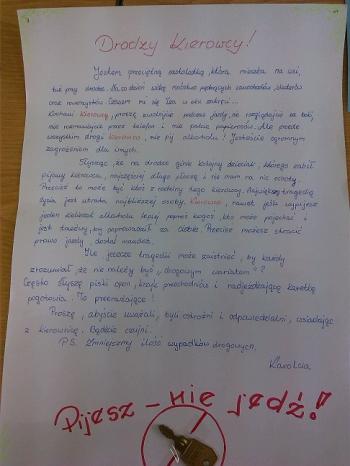 Drodzy Kierowcy!
Jestem przeciętną nastolatką, która mieszka na wsi,
tuż przy drodze. Na co dzień widzę mnóstwo pędzących samochodów, skuterów
oraz rowerzystów. Czasem mi się łza w oku zakręci...
Kochani Kierowcy, proszę zwolnijcie podczas jazdy, nie rozglądajcie się na boki,
nie rozmawiajcie przez telefon i nie palcie papierosów. Ale przede
wszystkim drogi Kierowco, nie pij alkoholu! Jesteście ogromnym
zagrożeniem dla innych.
Słysząc, że na drodze ginie kolejny dzieciak, którego zabił
pijany kierowca, najczęściej długo płaczę i nie mam na nic ochoty.
Przecież to może być ktoś z rodziny tego kierowcy. Największą tragedią
życia jest utrata najbliższej osoby. Kierowco, nawet jeśli wypijesz
jeden kieliszek alkoholu lepiej poproś kogoś, kto może pojechać i
jest trzeźwy, by poprowadził za Ciebie. Przecież możesz stracić
prawo jazdy, dostać mandat.
Ile jeszcze tragedii może zaistnieć, by każdy
zrozumiał, że nie należy być „drogowym wariatem"?
Często słyszę piski opon, krzyk przechodniów i nadjeżdżającą karetkę
pogotowia. To przerażające!
Proszę, abyście uważali, byli ostrożni i odpowiedzialni, wsiadając
z kierownicę. Bądźcie czujni...
P.S. Zmniejszmy ilość wypadków drogowych.
Karolcia
Pijesz - nie jedź!